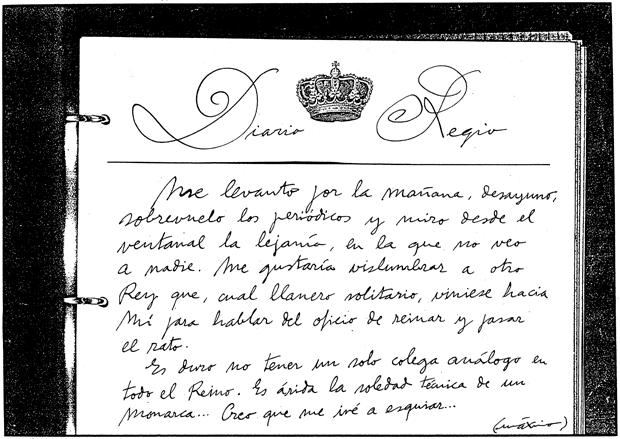 Diario Regio
Me levanto por la mañana, desayuno,
sobrevuelo los periódicos y miro desde el
ventanal la lejanía, en la que no veo
a nadie. Me gustaría vislumbrar a otro
Rey que, cual llanero solitario, viniese hacia
Mí para hablar del oficio de reinar y pasar
el rato.
Es duro no tener un solo colega análogo en
todo el Reino. Es árida la soledad técnica de un
Monarca... Creo que me iré a esquiar...
(máximo)